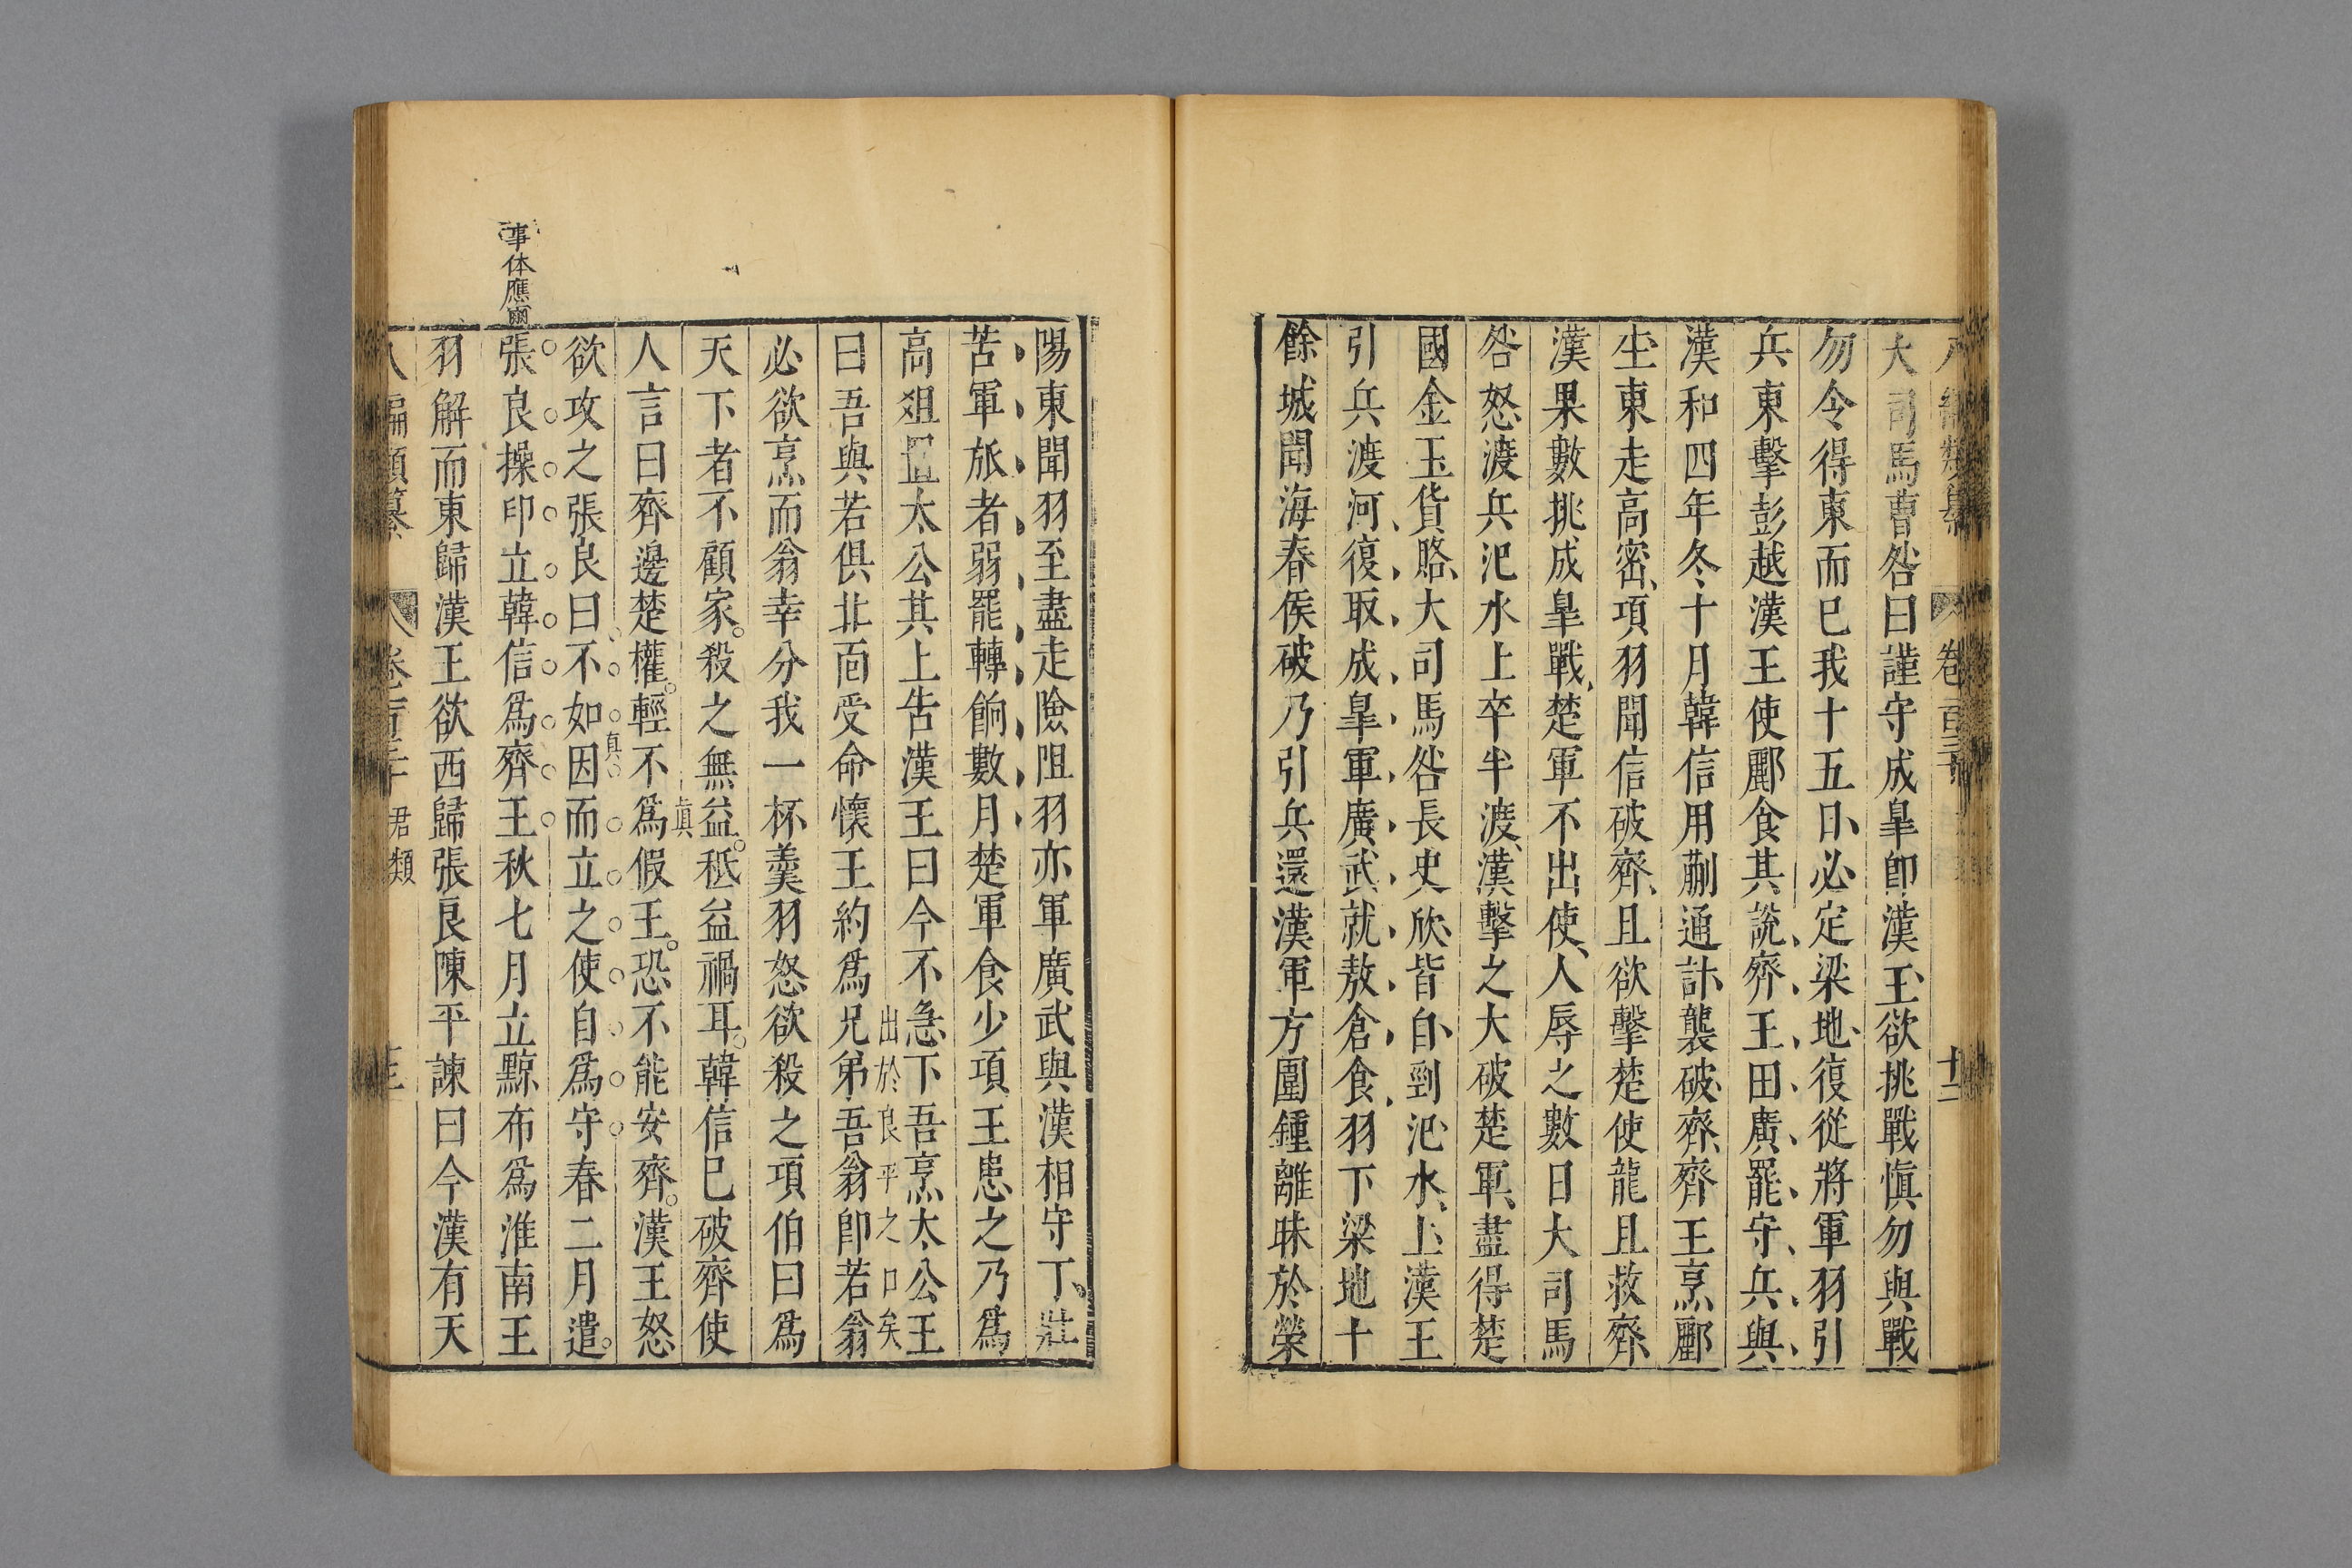 大司馬曹咎曰謹守成臯卽漢王欲挑戰愼勿與戰
勿令得東而巳我十五日必定梁地復從將軍羽引
兵東擊彭越漢王使酈食其說齊王田廣罷守兵與
漢和四年冬十月韓信用蒯通計襲破齊齊王烹酈
生東走高密項羽聞信破齊且欲擊楚使龍且救齊
漢果數挑成臯戰楚軍不出使人辱之數日大司馬
咎怒渡兵汜水上卒半渡漢擊之大破楚軍盡得楚
國金玉貨賂大司馬咎長史欣皆自剄汜水上漢王
引兵渡河復取成臯軍廣武就敖倉食羽下梁地十
餘城聞海春侯破乃引兵還漢軍方圍鍾離眛於滎
卷百三
十二
陽東聞羽至盡走險阻羽亦軍廣武與漢相守丁壯
苦軍旅老弱罷轉餉數月楚軍食少項王患之乃爲
高俎置太公其上告漢王曰今不急下吾烹太公王
出於良平之口矣
曰吾與若俱北面受命懷王約爲兄弟吾翁卽若翁
必欲烹而翁幸分我一杯羹羽怒欲殺之項伯曰爲
天下者不顧家殺之無益秪益禍耳韓信巳破齊使
眞
人言曰齊邊楚權輕不爲假王恐不能安齊漢王怒
真
欲攻之張良曰不如因而立之使自爲守春二月遣
事体應爾
張良操印立韓信爲齊王秋七月立黥布爲淮南王
羽解而東歸漢王欲西歸張良陳平諫曰今漢有天
八編類纂
君類